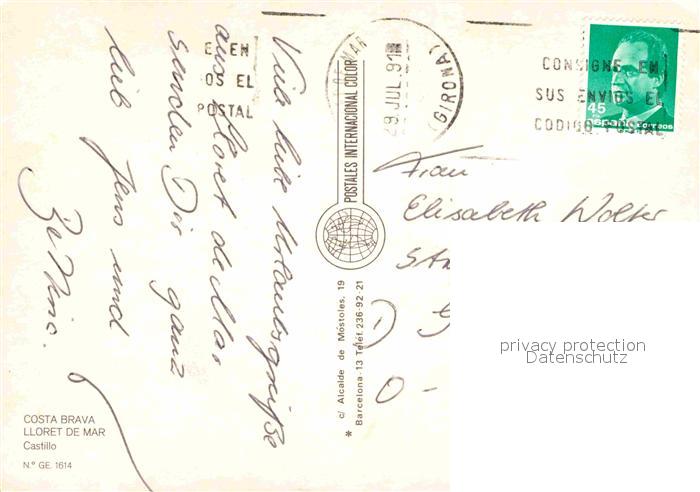 Viele liebe Urlaubsgrüße
aus Lloret de Mar
senden Dir ganz
lieb Jens und
E EN
OS EL
POSTAL
28 JUL. 91
(GIRONA)
CONSIGNE EN
SUS ENVIOS EL
CODIGO POSTAL
45
España CORREOS
POSTALES INTERNACIONAL COLOR
c/ Alcalde de Móstoles, 19
* Barcelona-13 Telef. 236-92-21
Frau
Elisabeth Wolter
D
O-
privacy protection
Datenschutz
COSTA BRAVA
LLORET DE MAR
Castillo
N.º GE. 1614